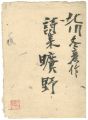 北川冬彦作
詩集 曠野